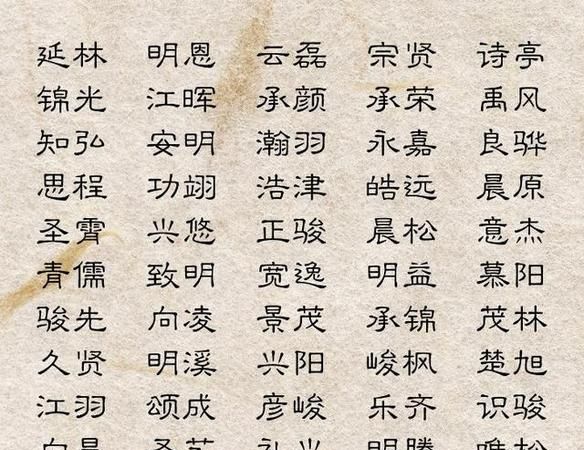 延林 明恩 云磊 宗贤 诗亭
锦光 江晖 承颜 承荣 禹风
知弘 安明 瀚羽 永嘉 良骅
思程 功翊 浩津 皓远 晨原
圣霄 兴悠 正骏 晨松 意杰
青儒 致明 宽逸 明益 慕阳
骏先 向凌 景茂 承锦 茂林
久贤 明溪 兴阳 峻枫 楚旭
江羽 颂成 彦峻 乐齐 识骏